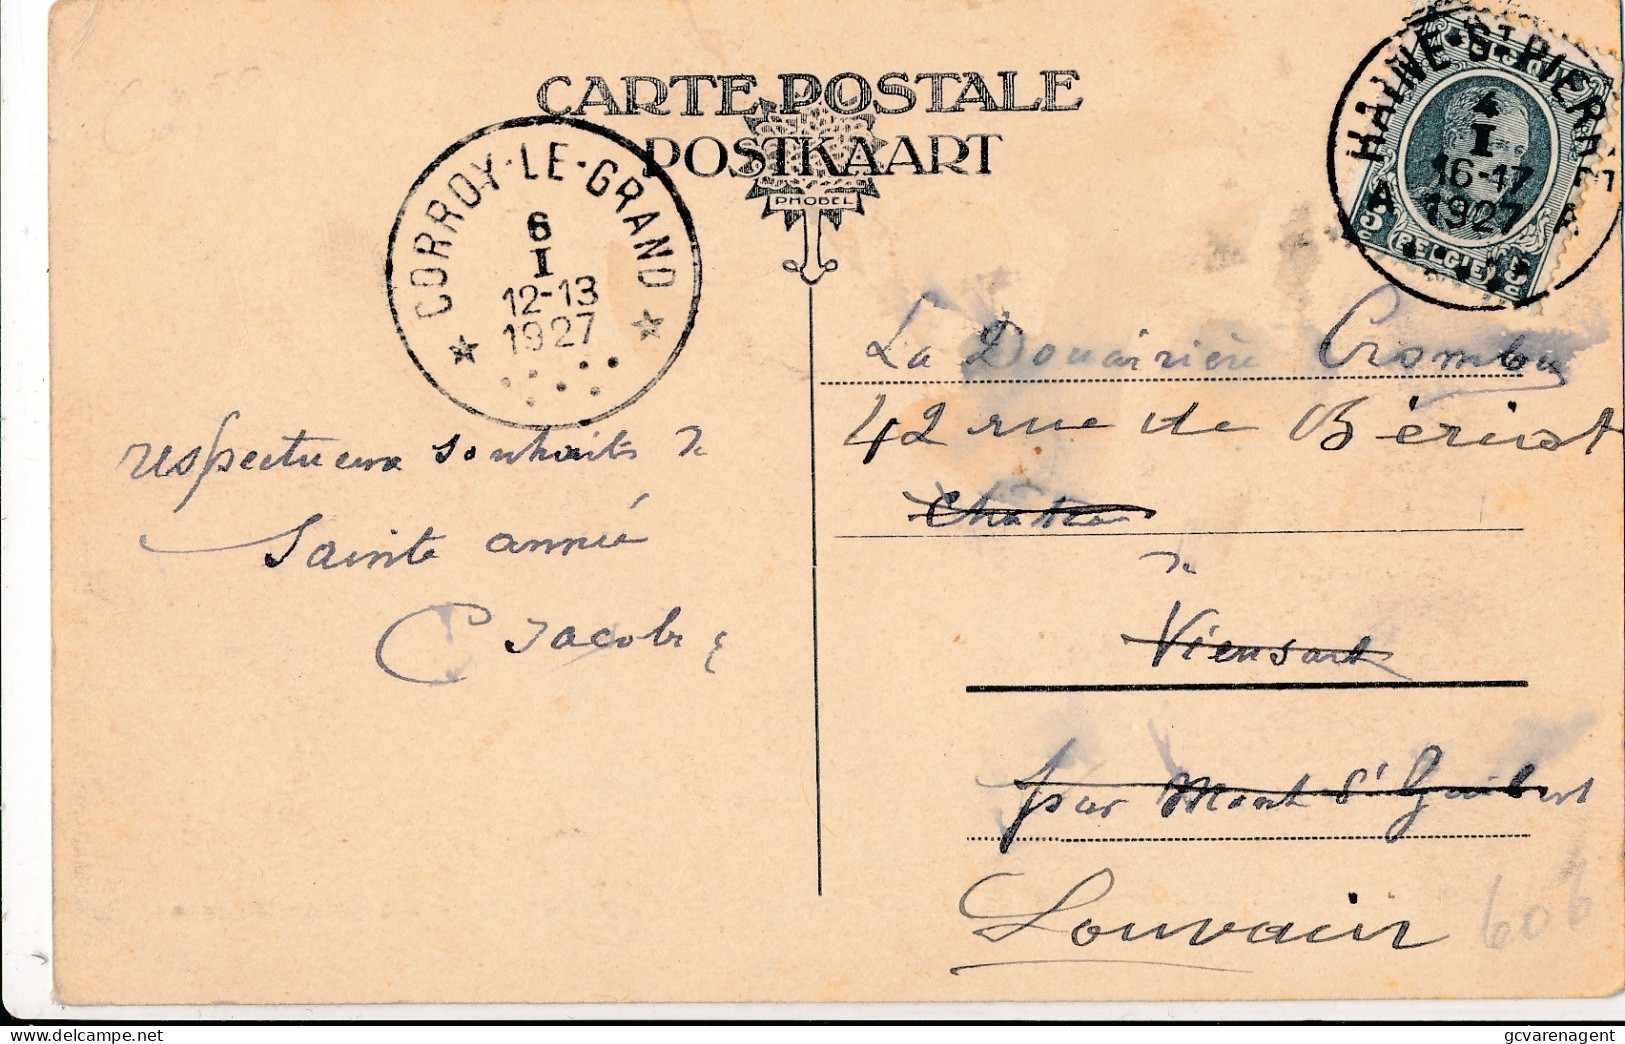 CARTE POSTALE
POSTKAART
PHOBEL
CORROY-LE-GRAND
6
I
12-13
1927
HAINE-ST-PIERR
4
I
16-17
1927
A
BELGIE
respectueux souhaits de
Sainte année
C Jacobs
La Douairière
42 rue de Bériot
de
par Mont St Guibert
Louvain
606
delcampe.net
gcvarenagent